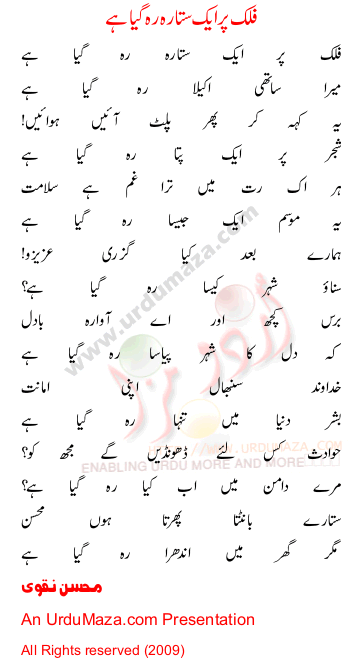 فلک پر ایک ستارہ رہ گیا ہے
فلک پر ایک ستارہ رہ گیا ہے
میرا ساتھی اکیلا رہ گیا ہے
یہ کہہ کر پھر پلٹ آئیں ہوائیں!
شجر پر ایک پتا رہ گیا ہے
ہر اک رت میں ترا غم ہے سلامت
یہ موسم ایک جیسا رہ گیا ہے
ہمارے بعد کیا گزری عزیزو!
سناؤ شہر کیسا رہ گیا ہے؟
برس کچھ اور اے آوارہ بادل
کہ دل کا شہر پیاسا رہ گیا ہے
خداوند سنبھال اپنی امانت
بشر دنیا میں تنہا رہ گیا ہے
حوادث کس لئے ڈھونڈیں گے مجھ کو؟
مرے دامن میں اب کیا رہ گیا ہے؟
ستارے بانٹتا پھرتا ہوں محسن
مگر گھر میں اندھرا رہ گیا ہے
محسن نقوی
An UrduMaza.com Presentation
All Rights reserved (2009)
www.urdumaza.com
اردو مزا
//WWW.URDUMAZA.COM
ENABLING URDU MORE AND MORE